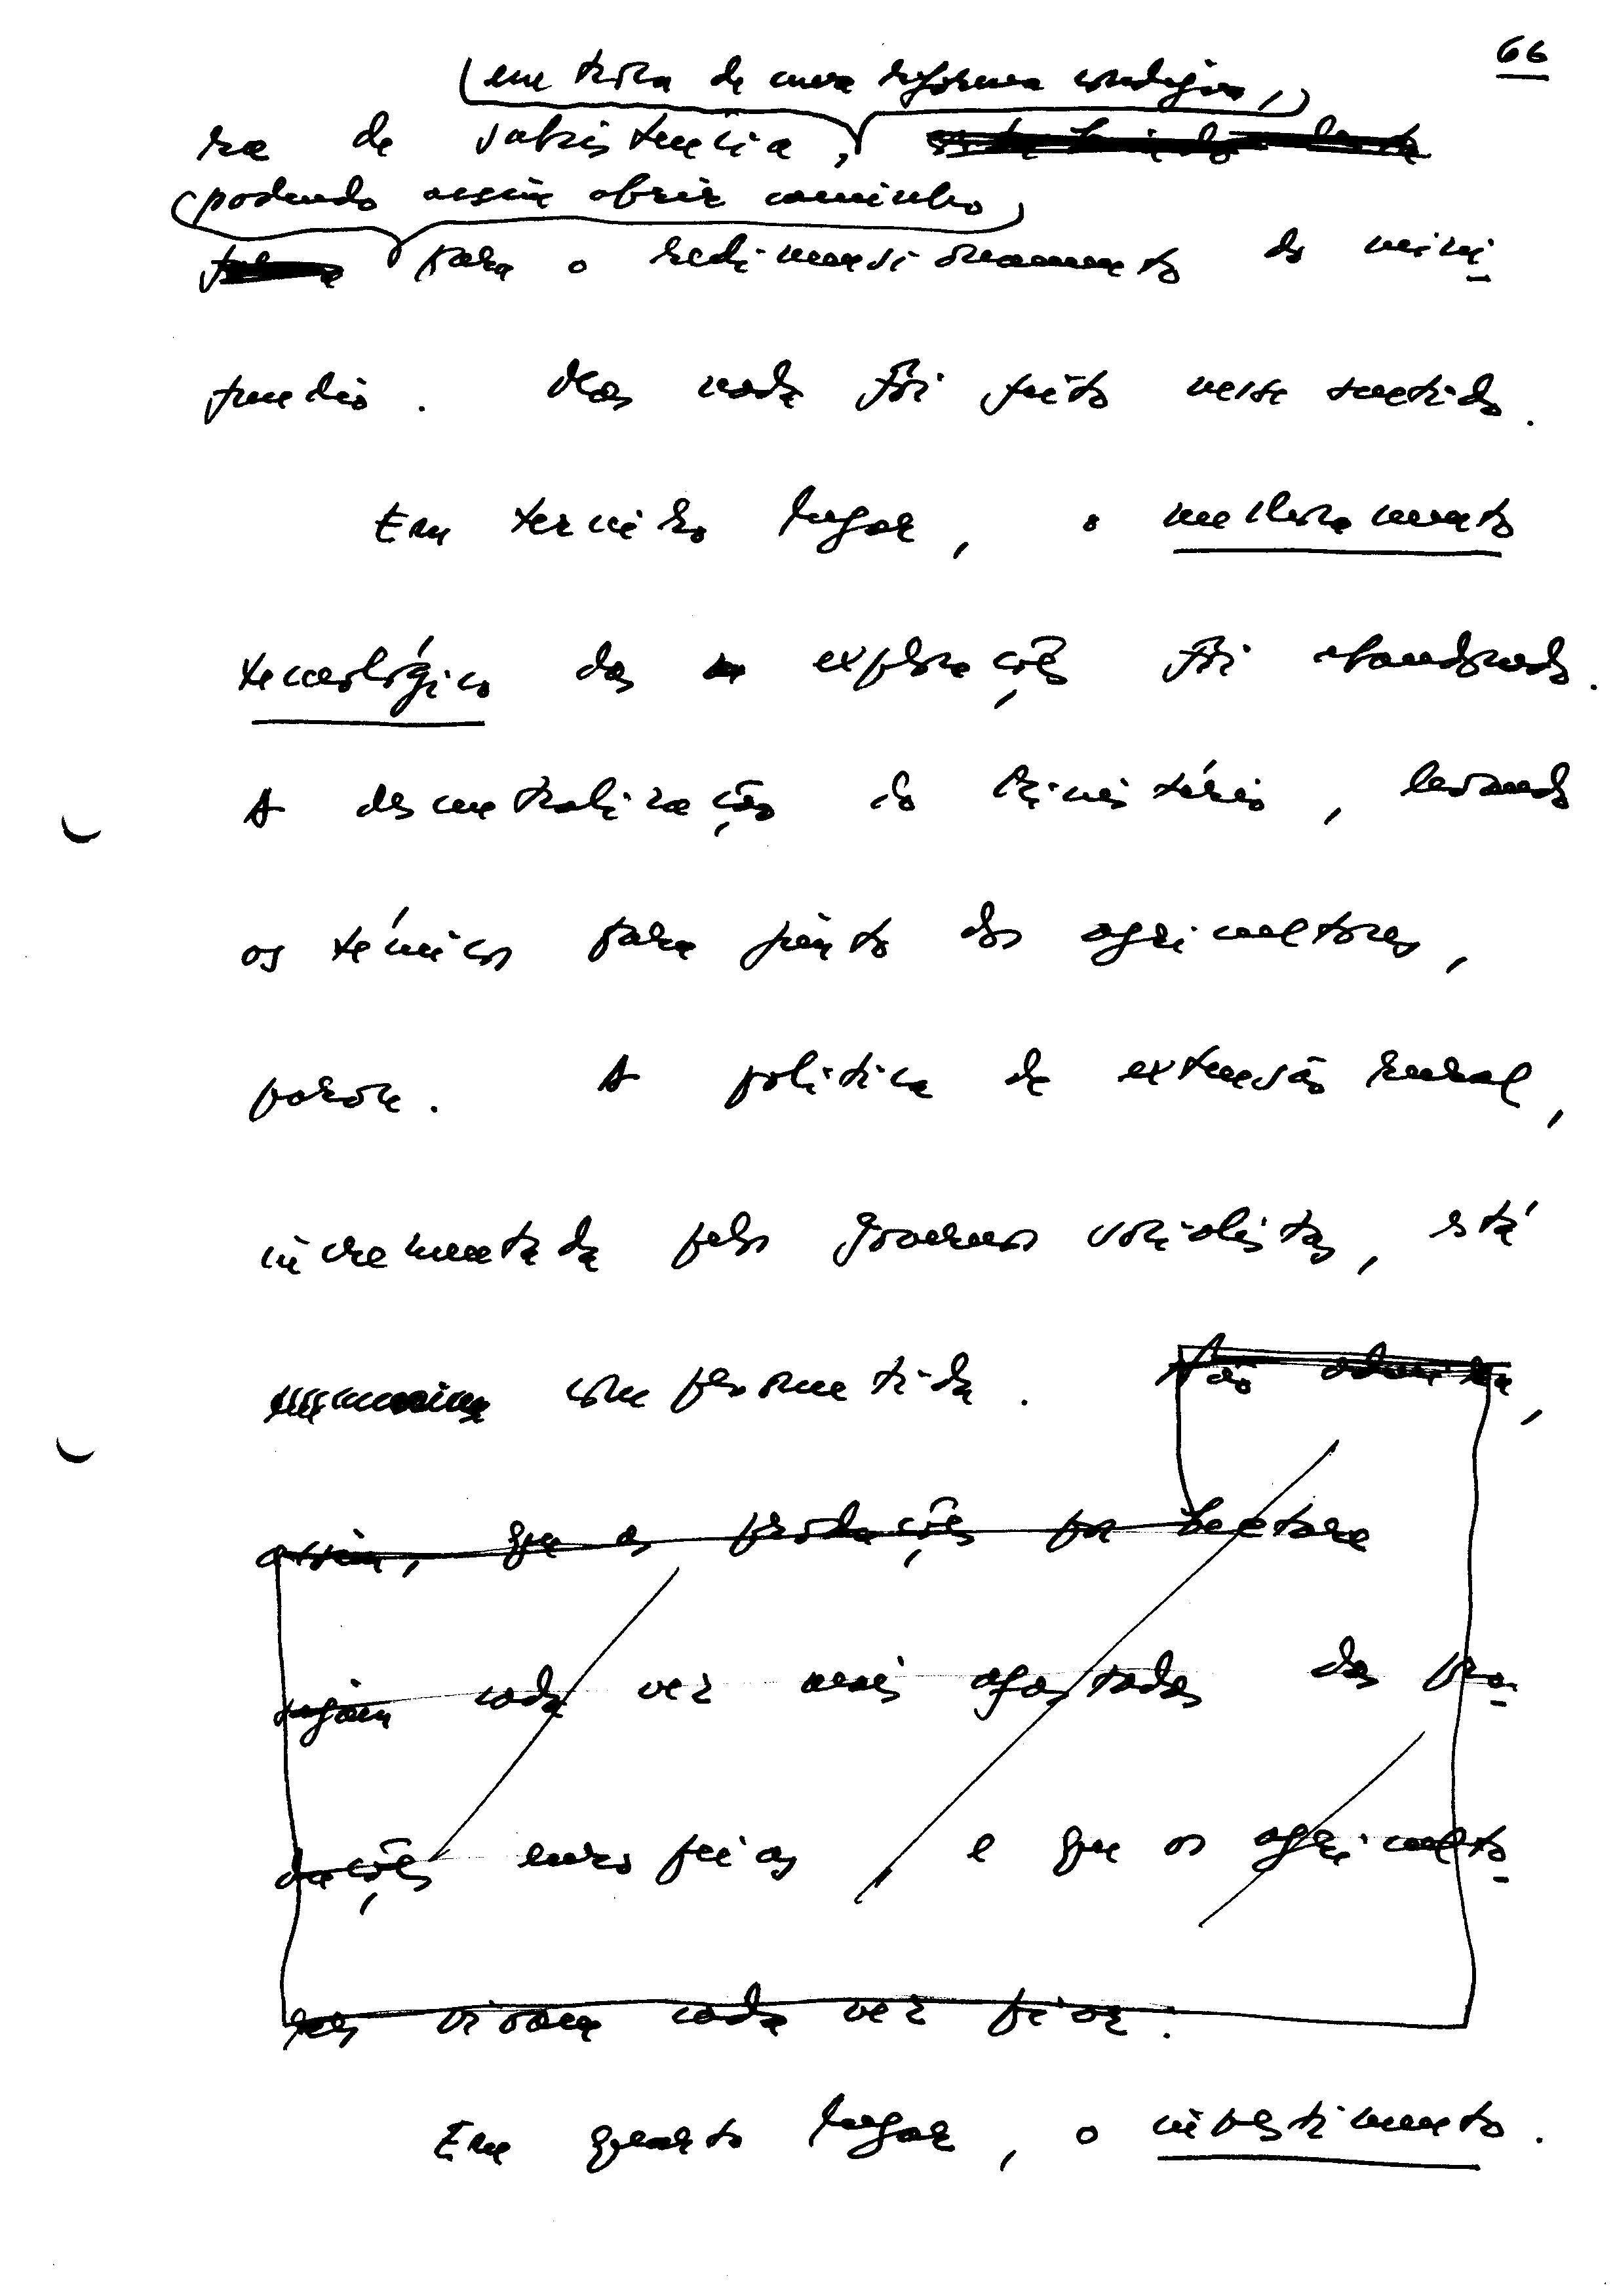 66
(em troca de uma reforma condigna,)
ra de subsistência,
(podendo assim abrir caminho)
para o redimensionamento do mini
fundio. Mas nada foi feito nesse sentido.
Em terceiro lugar, o melhoramento
tecnológico das explorações foi abandonado.
A descentralização do Ministério, levando
os técnicos para junto dos agricultores,
parou. A política de extensão rural,
incrementada pelos governos socialistas, está
comprometida. Não admira,
assim, que as produções por hectare
sejam cada vez mais afastadas das pro-
duções europeias, e que os agriculto-
res vivam cada vez pior.
Em quarto lugar, o investimento.